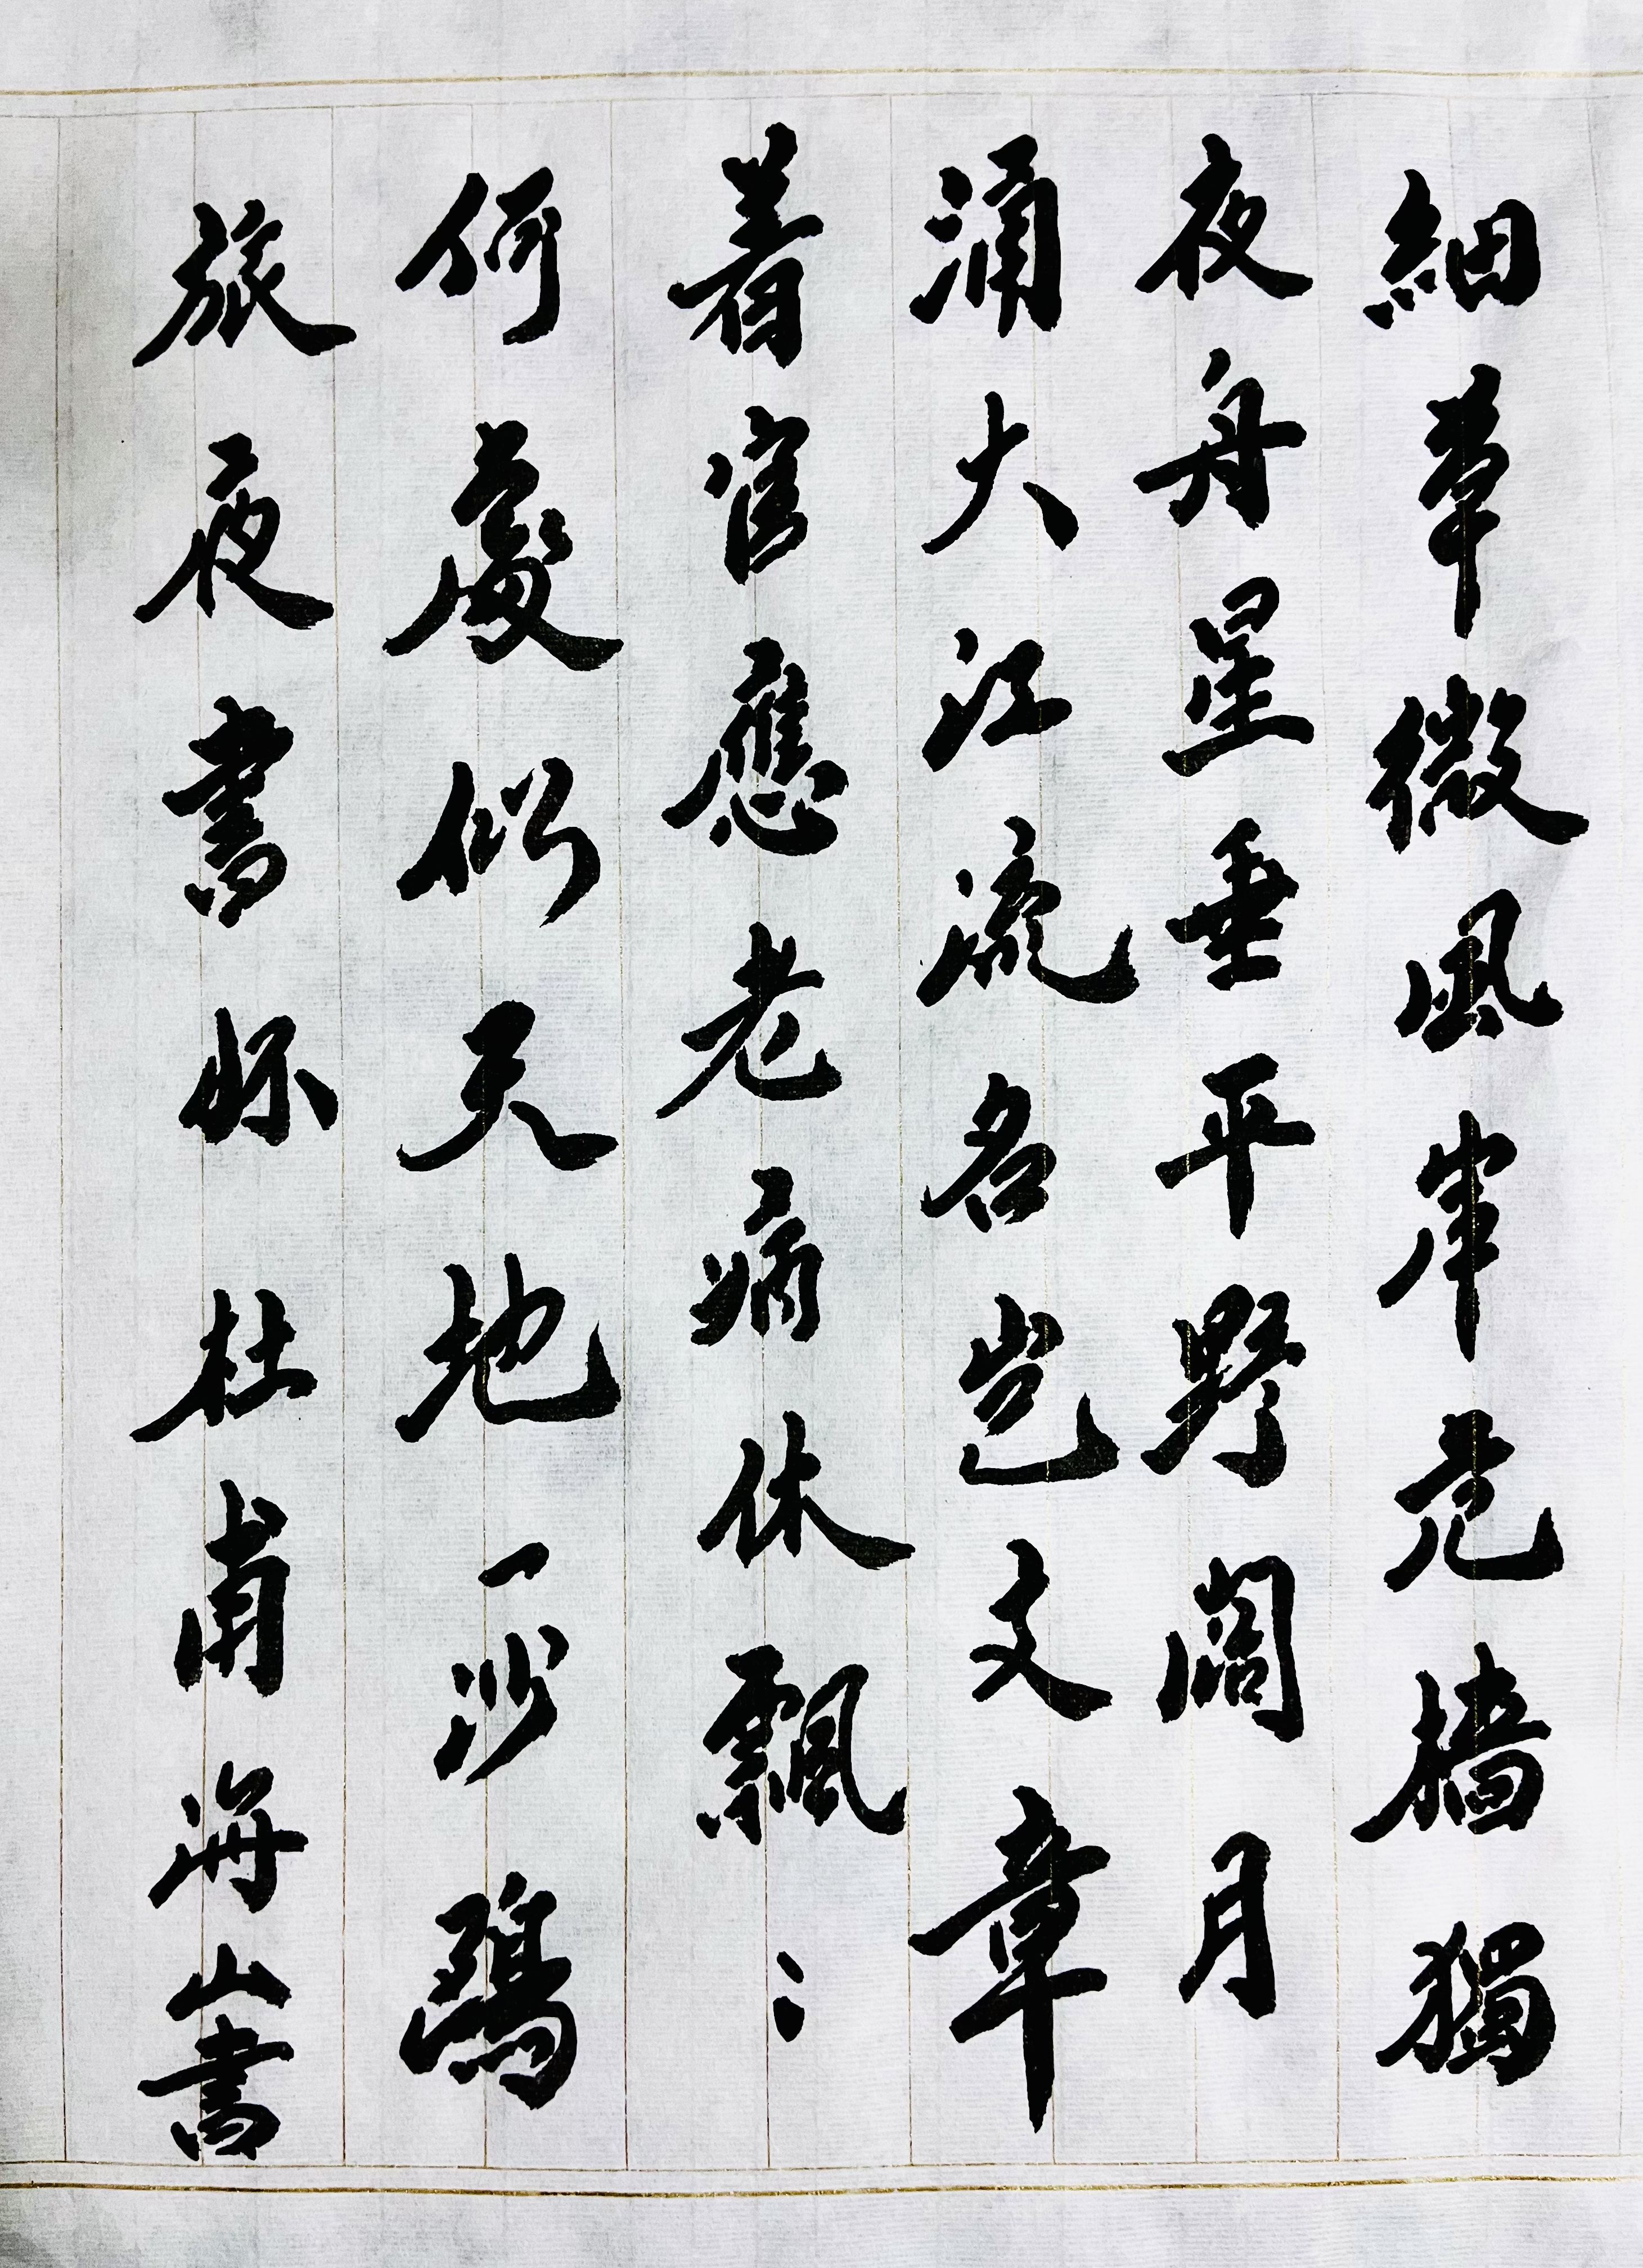 細草微風岸危檣獨
夜舟星垂平野闊月
涌大江流名豈文章
着官應老病休飄〻
何處似天地一沙鷗
旅夜書怀 杜甫 海山書